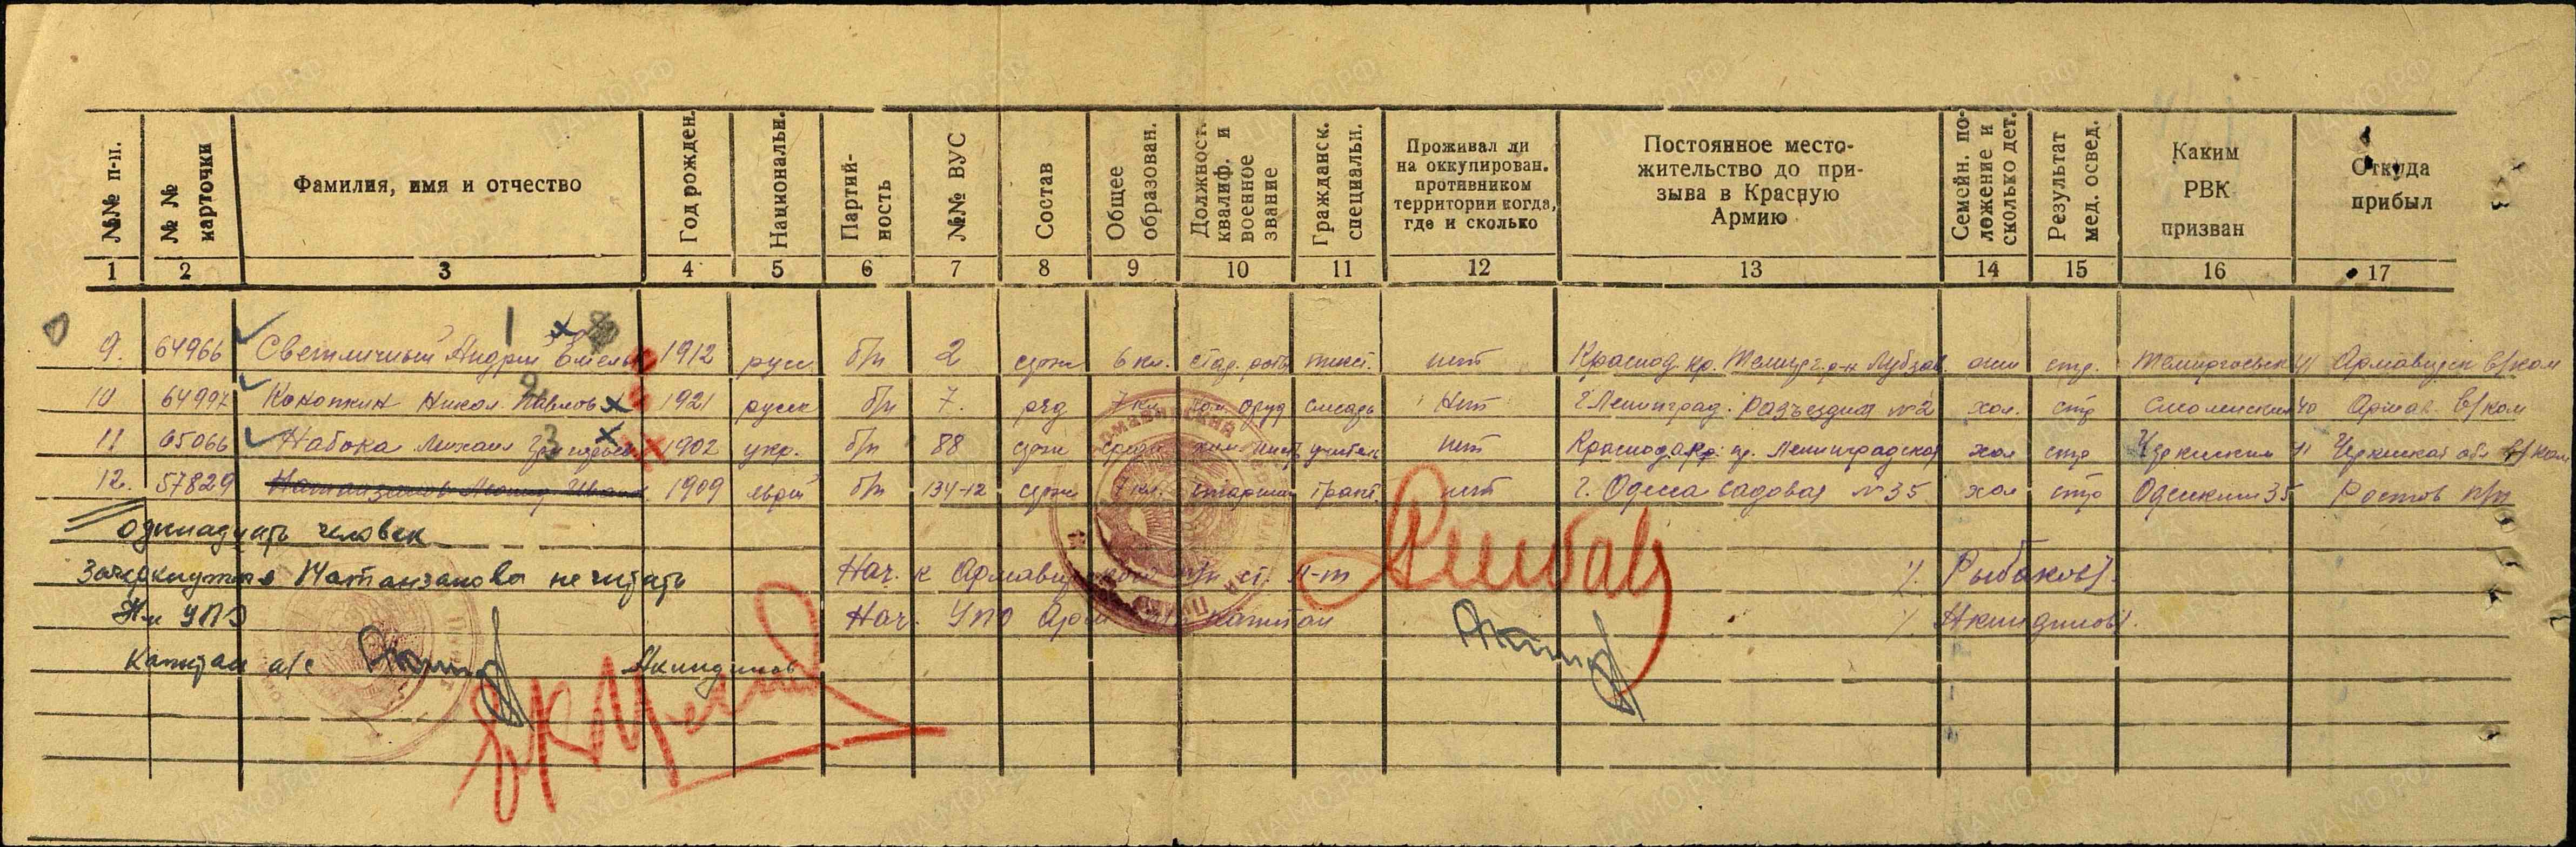 №№ п-п. | № № карточки | Фамилия, имя и отчество | Год рожден. | Национальн. | Партий-ность | №№ ВУС | Состав | Общее образован. | Должност. квалиф. и военное звание | Гражданск. специальн. | Проживал ли на оккупирован. противником территории когда, где и сколько | Постоянное место-жительство до при-зыва в Красную Армию | Семейн. по-ложение и сколько дет. | Результат мед. освед. | Каким РВК призван | Откуда прибыл
1 | 2 | 3 | 4 | 5 | 6 | 7 | 8 | 9 | 10 | 11 | 12 | 13 | 14 | 15 | 16 | 17
9. | 64966 | Светличный Андрей Емельян | 1912 | русс | б/п | 2 | серж | 6 кл. | | | нет | Краснод. кр. Темирг. р-н | | стр. | 41 | Армавирск в/ком
10 | 64997 | Конопкин Никол. Павлов | 1921 | русск | б/п | 7. | ряд | 7 кл | ком. оруд | слесарь | Нет | г. Ленинград. Разъезжая №2 | хол. | стр | Смоленским 40 | Армав. в/ком
11 | 65066 | Набока Михаил Григорьев | 1902 | укр. | б/п | 88 | серж | средн | | учитель | нет | Краснода кр. Ленинградская | хол | стр | 41 | в/ком
12. | 57829 | Натанзанов Леонид Иван | 1909 | еврей | б/п | 134-12 | серж | кл. | старшин | | нет | г. Одесса Садовая №35 | хол | стр | Одесским 35 | Ростов п/п
одиннадцать человек
Зачеркнутое Натанзанова не читать
Нач. к Армавирского п/п ст. л-т / Рыбаков/.
Нч УПО
Нач. УПО Арм п/п капитан / Акиндинов/.
Капитан а/с Акиндинов